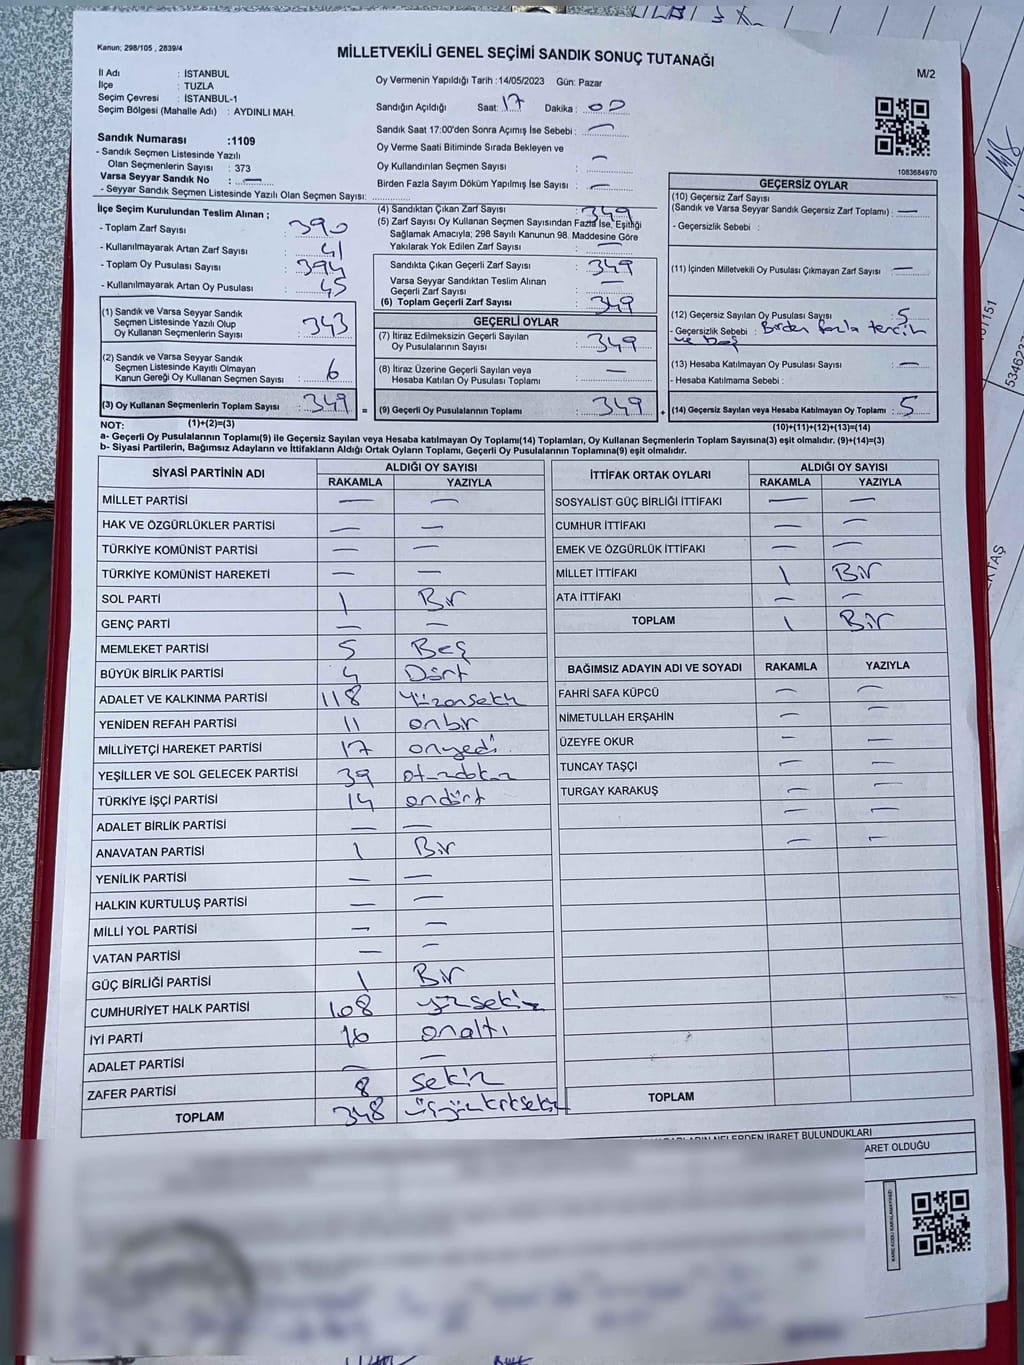 Kanun; 298/105 , 2839/4
MİLLETVEKİLİ GENEL SEÇİMİ SANDIK SONUÇ TUTANAĞI
M/2
İl Adı : İSTANBUL
İlçe : TUZLA
Seçim Çevresi : İSTANBUL-1
Seçim Bölgesi (Mahalle Adı) : AYDINLI MAH.
Oy Vermenin Yapıldığı Tarih :14/05/2023 Gün: Pazar
Sandığın Açıldığı Saat: 17 Dakika : 00
Sandık Saat 17:00'den Sonra Açımış İse Sebebi : —
Oy Verme Saati Bitiminde Sırada Bekleyen ve
Oy Kullandırılan Seçmen Sayısı —
Birden Fazla Sayım Döküm Yapılmış İse Sayısı : —
1083684970
Sandık Numarası :1109
- Sandık Seçmen Listesinde Yazılı
Olan Seçmenlerin Sayısı : 373
Varsa Seyyar Sandık No : —
- Seyyar Sandık Seçmen Listesinde Yazılı Olan Seçmen Sayısı:
İlçe Seçim Kurulundan Teslim Alınan ;
- Toplam Zarf Sayısı : 390
- Kullanılmayarak Artan Zarf Sayısı : 41
- Toplam Oy Pusulası Sayısı : 394
- Kullanılmayarak Artan Oy Pusulası : 45
(1) Sandık ve Varsa Seyyar Sandık
Seçmen Listesinde Yazılı Olup
Oy Kullanan Seçmenlerin Sayısı : 343
(2) Sandık ve Varsa Seyyar Sandık
Seçmen Listesinde Kayıtlı Olmayan
Kanun Gereği Oy Kullanan Seçmen Sayısı : 6
(3) Oy Kullanan Seçmenlerin Toplam Sayısı : 349
(1)+(2)=(3)
(4) Sandıktan Çıkan Zarf Sayısı : 349
(5) Zarf Sayısı Oy Kullanan Seçmen Sayısından Fazla İse, Eşitliği
Sağlamak Amacıyla; 298 Sayılı Kanunun 98. Maddesine Göre
Yakılarak Yok Edilen Zarf Sayısı : —
Sandıkta Çıkan Geçerli Zarf Sayısı : 349
Varsa Seyyar Sandıktan Teslim Alınan
Geçerli Zarf Sayısı : —
(6) Toplam Geçerli Zarf Sayısı : 349
GEÇERLİ OYLAR
(7) İtiraz Edilmeksizin Geçerli Sayılan
Oy Pusulalarının Sayısı : 349
(8) İtiraz Üzerine Geçerli Sayılan veya
Hesaba Katılan Oy Pusulası Toplamı : —
= (9) Geçerli Oy Pusulalarının Toplamı : 349
GEÇERSİZ OYLAR
(10) Geçersiz Zarf Sayısı
(Sandık ve Varsa Seyyar Sandık Geçersiz Zarf Toplamı) : —
- Geçersizlik Sebebi :
(11) İçinden Milletvekili Oy Pusulası Çıkmayan Zarf Sayısı : —
(12) Geçersiz Sayılan Oy Pusulası Sayısı : 5
- Geçersizlik Sebebi : Birden fazla tercih
ve boş
(13) Hesaba Katılmayan Oy Pusulası Sayısı : —
- Hesaba Katılmama Sebebi :
+ (14) Geçersiz Sayılan veya Hesaba Katılmayan Oy Toplamı : 5
(10)+(11)+(12)+(13)=(14)
NOT:
a- Geçerli Oy Pusulalarının Toplamı(9) ile Geçersiz Sayılan veya Hesaba katılmayan Oy Toplamı(14) Toplamları, Oy Kullanan Seçmenlerin Toplam Sayısına(3) eşit olmalıdır. (9)+(14)=(3)
b- Siyasi Partilerin, Bağımsız Adayların ve İttifakların Aldığı Ortak Oyların Toplamı, Geçerli Oy Pusulalarının Toplamına(9) eşit olmalıdır.
SİYASİ PARTİNİN ADI ALDIĞI OY SAYISI
RAKAMLA YAZIYLA
MİLLET PARTİSİ — —
HAK VE ÖZGÜRLÜKLER PARTİSİ — —
TÜRKİYE KOMÜNİST PARTİSİ — —
TÜRKİYE KOMÜNİST HAREKETİ — —
SOL PARTİ 1 Bir
GENÇ PARTİ — —
MEMLEKET PARTİSİ 5 Beş
BÜYÜK BİRLİK PARTİSİ 4 Dört
ADALET VE KALKINMA PARTİSİ 118 Yüzonsekiz
YENİDEN REFAH PARTİSİ 11 onbir
MİLLİYETÇİ HAREKET PARTİSİ 17 onyedi
YEŞİLLER VE SOL GELECEK PARTİSİ 39 otuzdokuz
TÜRKİYE İŞÇİ PARTİSİ 14 ondört
ADALET BİRLİK PARTİSİ — —
ANAVATAN PARTİSİ 1 Bir
YENİLİK PARTİSİ — —
HALKIN KURTULUŞ PARTİSİ — —
MİLLİ YOL PARTİSİ — —
VATAN PARTİSİ — —
GÜÇ BİRLİĞİ PARTİSİ 1 Bir
CUMHURİYET HALK PARTİSİ 108 yüzsekiz
İYİ PARTİ 16 onaltı
ADALET PARTİSİ — —
ZAFER PARTİSİ 8 sekiz
TOPLAM 348 üçyüzkırksekiz
İTTİFAK ORTAK OYLARI ALDIĞI OY SAYISI
RAKAMLA YAZIYLA
SOSYALİST GÜÇ BİRLİĞİ İTTİFAKI — —
CUMHUR İTTİFAKI — —
EMEK VE ÖZGÜRLÜK İTTİFAKI — —
MİLLET İTTİFAKI 1 Bir
ATA İTTİFAKI — —
TOPLAM 1 Bir
BAĞIMSIZ ADAYIN ADI VE SOYADI RAKAMLA YAZIYLA
FAHRİ SAFA KÜPCÜ — —
NİMETULLAH ERŞAHİN — —
ÜZEYFE OKUR — —
TUNCAY TAŞÇI — —
TURGAY KARAKUŞ — —
— —
— —
TOPLAM
NELERDEN İBARET BULUNDUKLARI
ARET OLDUĞU